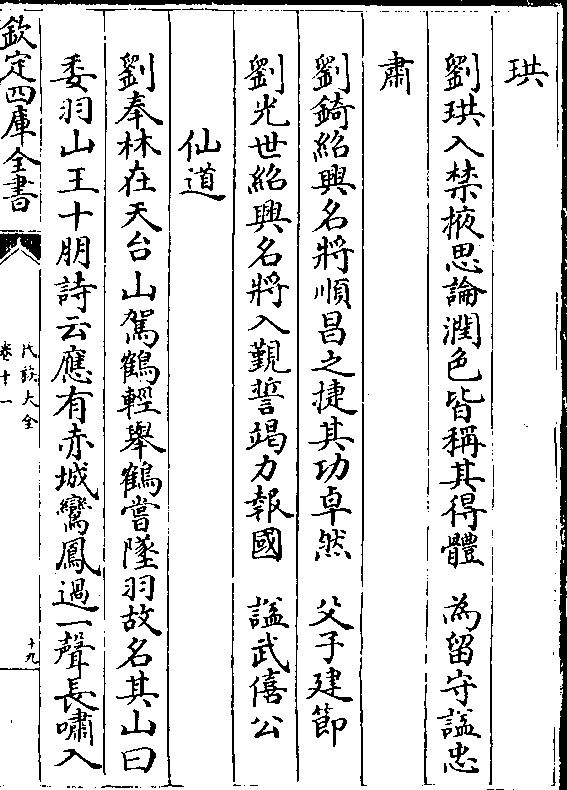 珙
劉珙入禁掖思論潤色皆稱其得體　為留守諡忠
肅
劉錡紹興名將順昌之捷其功卓然　父子建節
劉光世紹興名將入覲誓竭力報國　諡武僖公
仙道
劉奉林在天台山駕鶴輕舉鶴嘗墜羽故名其山曰
委羽山王十朋詩云應有赤城鸞鳳過一聲長嘯入
欽定四庫全書
氏族大全
卷十一
十九